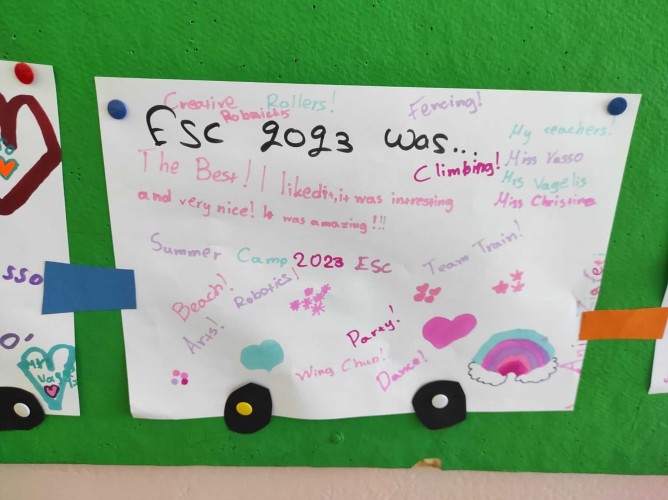 Creative Rollers!
Robotics
Fencing!
ESC 2023 was...
My teachers!
Miss Vasso
Mrs Vagelis
Miss Christine
Climbing!
The Best! I likedit, it was intresting
and very nice! It was amazing!!!
Summer Camp 2023 ESC
Team Train!
Beach!
Robotics!
Arts!
Party!
Wing Chun!
Dance!
sso